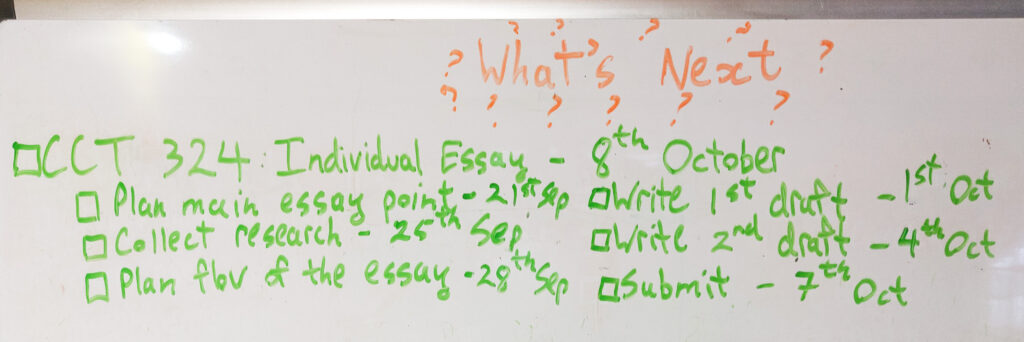 ? ? ? ? ?
? What's Next ?
? ? ? ? ? ?
☐ CCT 324: Individual Essay - 8th October
☐ Plan main essay point - 21st Sep ☐ Write 1st draft - 1st Oct
☐ Collect research - 25th Sep ☐ Write 2nd draft - 4th Oct
☐ Plan flow of the essay - 28th Sep ☐ Submit - 7th Oct